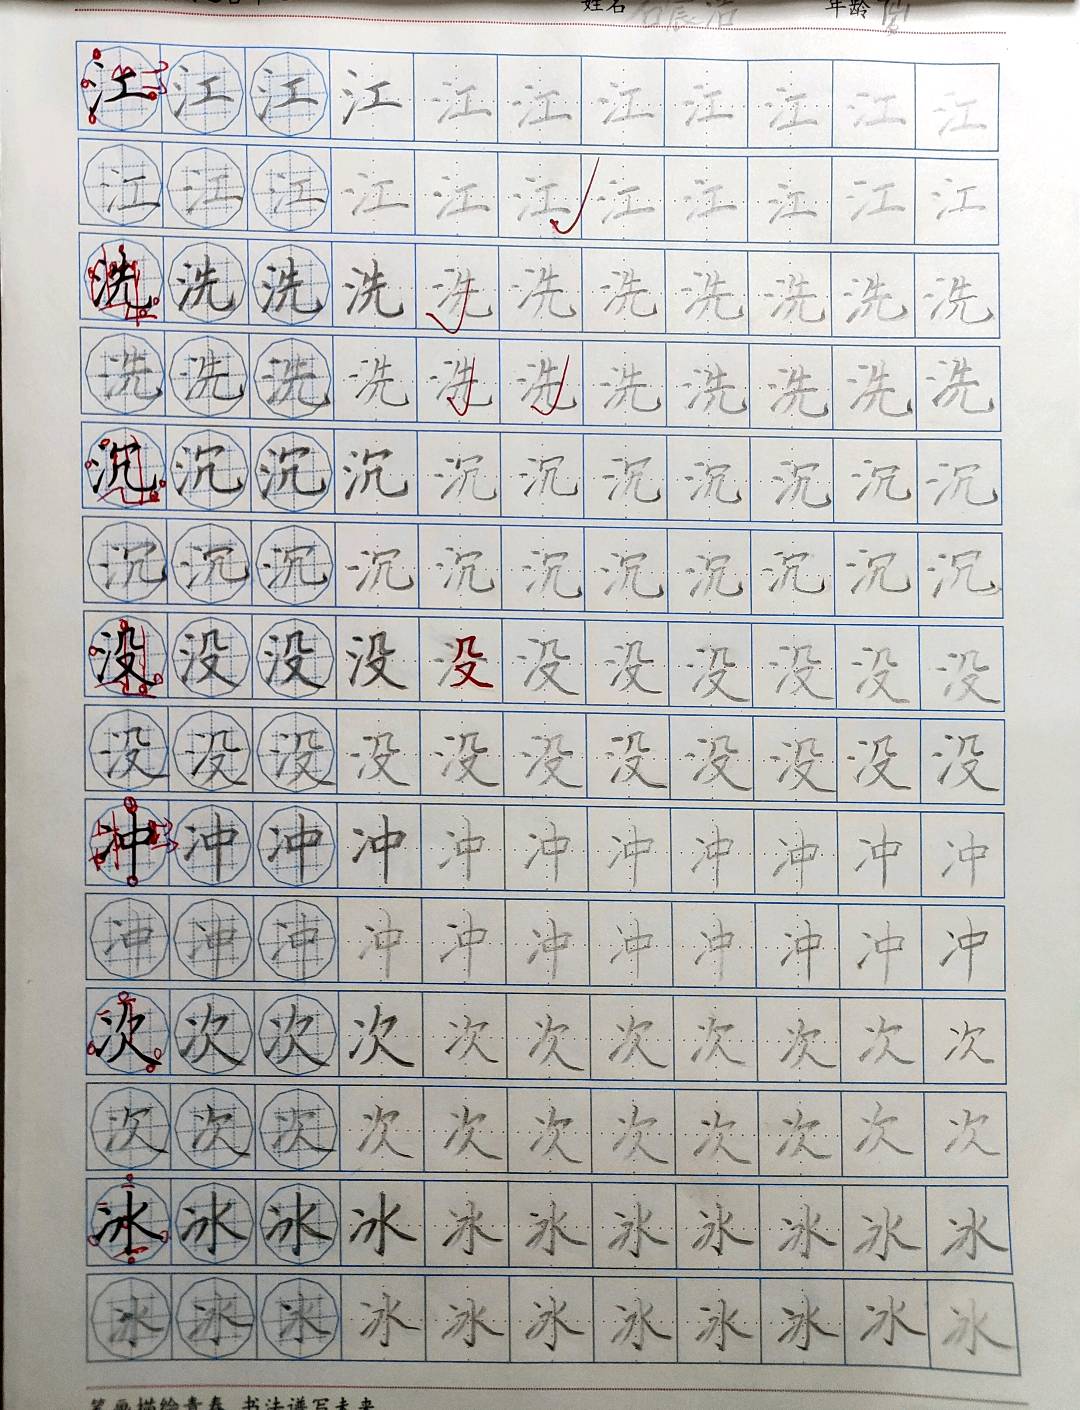 姓名 石宸浩 年龄
江江江江江江江江江江江
江江江江江江江江江江江
洗洗洗洗洗洗洗洗洗洗洗
洗洗洗洗洗洗洗洗洗洗洗
沉沉沉沉沉沉沉沉沉沉沉
沉沉沉沉沉沉沉沉沉沉沉
没没没没没没没没没没没
没没没没没没没没没没没
冲冲冲冲冲冲冲冲冲冲冲
冲冲冲冲冲冲冲冲冲冲冲
次次次次次次次次次次次
次次次次次次次次次次次
冰冰冰冰冰冰冰冰冰冰冰
冰冰冰冰冰冰冰冰冰冰冰
笔画描绘青春 书法谱写未来